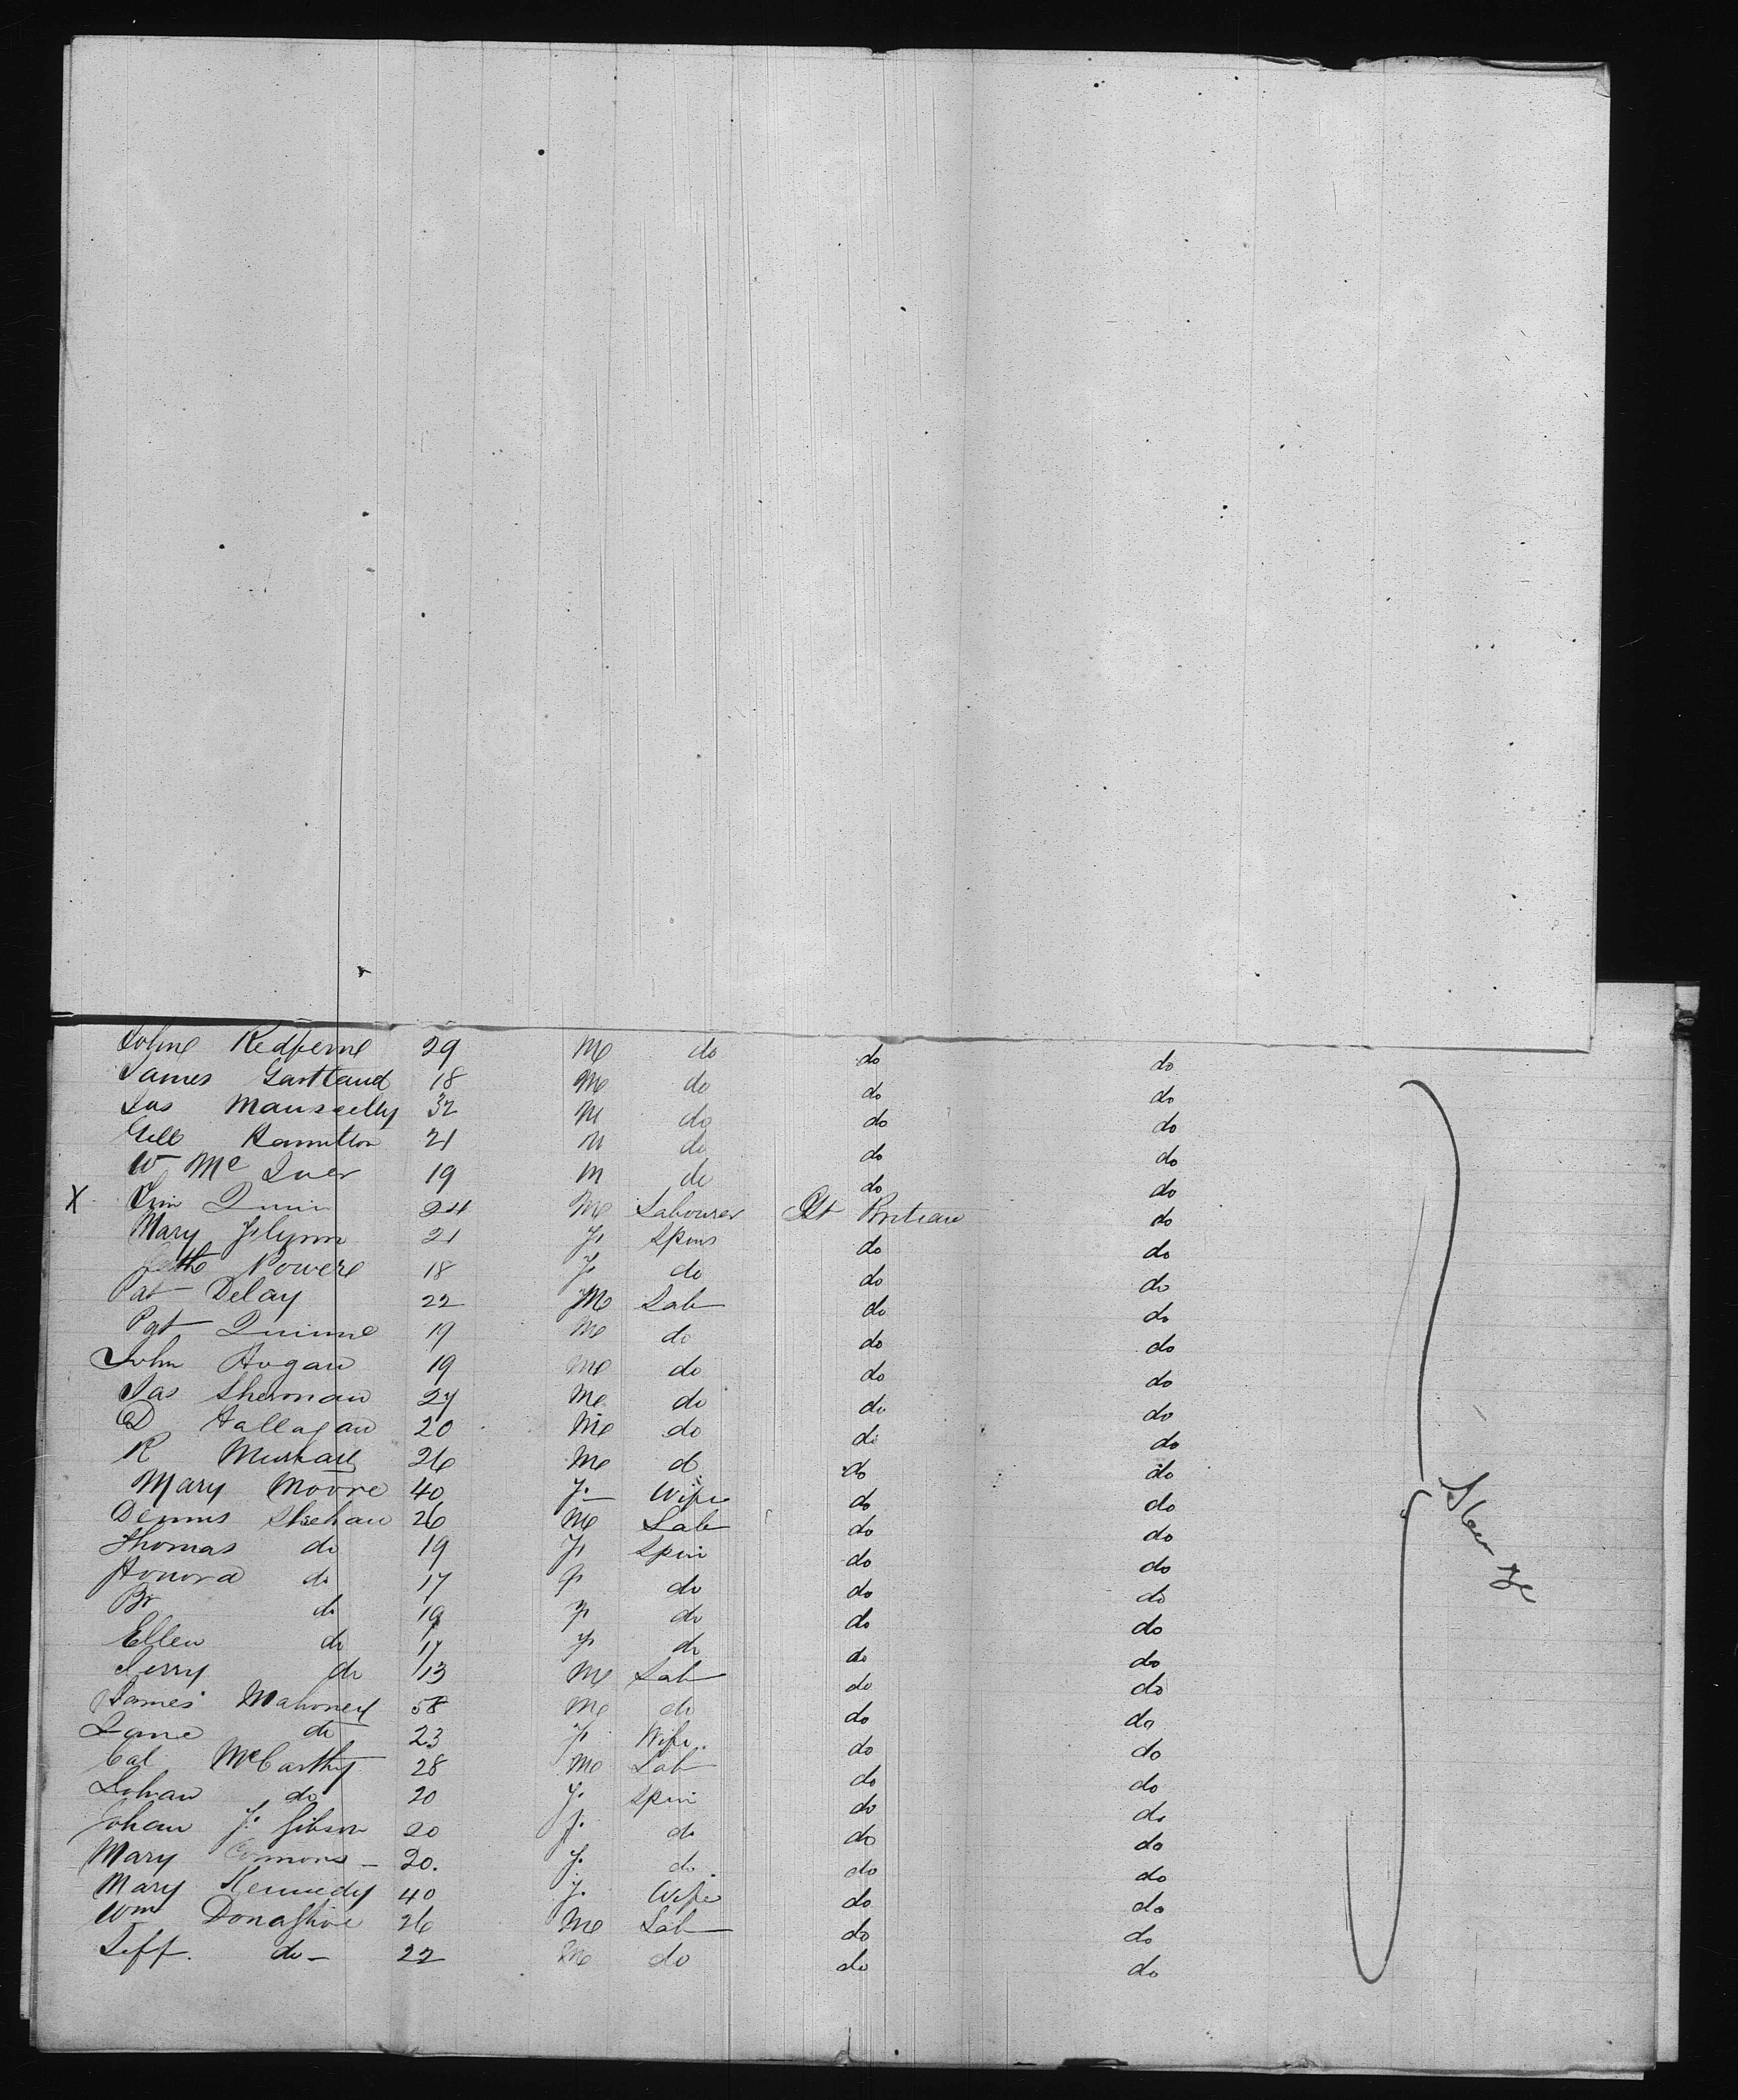 John Redferne 29 M do do do
James Gartland 18 M do do do
Jas Mansselly 32 M do do do
Hamilton 21 M do do do
W Mc 19 M do do do
X Quin 24 M Labourer Gt Britain do
Mary Flynn 21 F Spins do do
Powers 18 F do do do
Pat Delay 22 M Lab do do
Pat Quinne 19 M do do do
John Hogan 19 M do do do
Jas Shernan 27 M do do do
D Hallagan 20 M do do do
R Murray 26 M d do do
Mary Moore 40 F. Wife do do
Dennis Shehan 26 M Lab do do
Thomas do 19 F Spin do do
Honora do 17 F do do do
Br do 19 F do do do
Ellen do 17 F do do do
Jerry do 13 M Lab do do
James Mahoney 58 M do do do
do 23 F Wife do do
Cal McCarthy 28 M Lab do do
Johan do 20 F. Spin do do
Johan F. Gibson 20 F. do do do
Mary Connors 20. F. do do do
Mary Kennedy 40 F. Wife do do
Wm Donaghue 26 M Lab do do
Jeff. do 22 M do do do